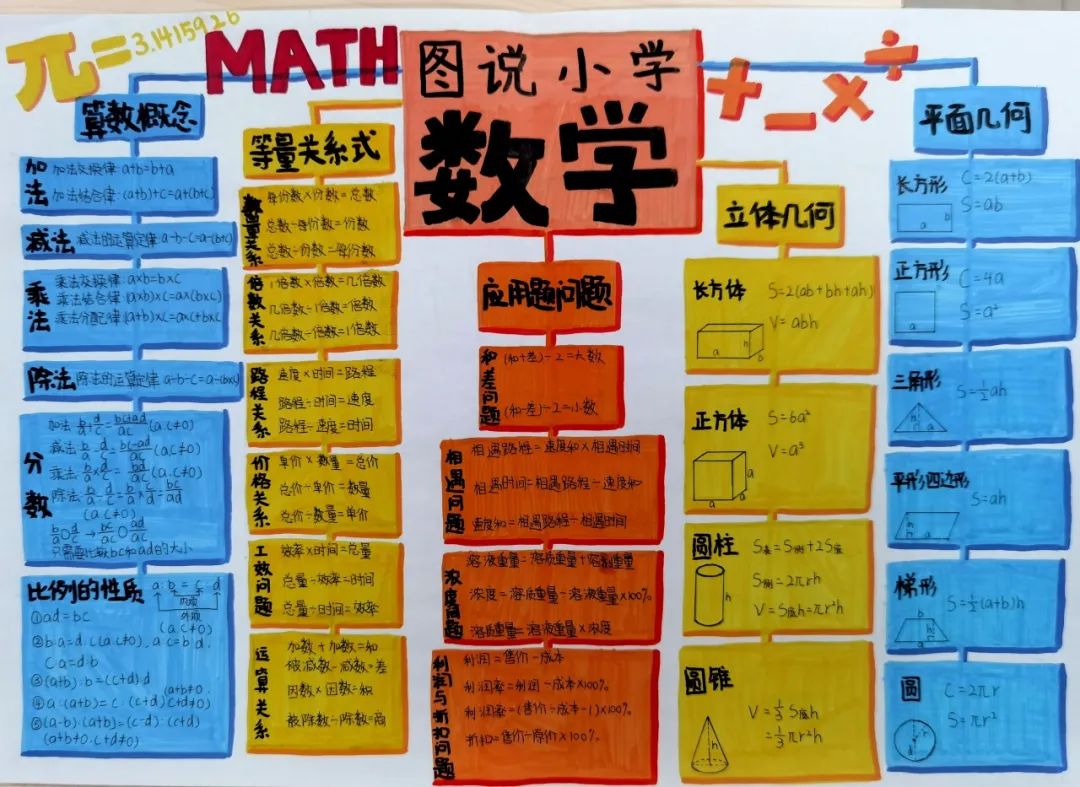 π=3.1415926
MATH
图说小学
数学
+-×÷
算数概念
加法
加法交换律:a+b=b+a
加法结合律:(a+b)+c=a+(b+c)
减法
减法的运算定律 a-b-c=a-(b+c)
乘法
乘法交换律:a×b=b×c
乘法结合律:(a×b)×c=a×(b×c)
乘法分配律(a+b)×c=a×c+b×c
除法
除法的运算定律 a÷b÷c=a÷(b×c)
分数
加法 b/a+d/c=bc+ad/ac (a.c≠0)
减法 b/a-d/c=bc-ad/ac (a.c≠0)
乘法 b/a×d/c=bd/ac (a.c≠0)
除法 b/a÷d/c=b/a×c/d=bc/ad
(a.c≠0)
b/a○d/c→bc/ac○ad/ac
只需要比较bc和ad的大小
比例的性质
a:b=c:d
内项
外项
(a.c≠0)
①ad=bc
②b:a=d:c(a.c≠0), a:c=b:d.
c:a=d:b
③(a+b):b=(c+d):d
④a:(a+b)=c:(c+d)
(a+b≠0.
c+d≠0)
⑤(a-b):(a+b)=(c-d):(c+d)
(a+b≠0.c+d≠0)
等量关系式
数量关系
每份数×份数=总数
总数÷每份数=份数
总数÷份数=每份数
倍数关系
1倍数×倍数=几倍数
几倍数÷1倍数=倍数
几倍数÷倍数=1倍数
路程关系
速度×时间=路程
路程÷时间=速度
路程÷速度=时间
价格关系
单价×数量=总价
总价÷单价=数量
总价÷数量=单价
工效问题
效率×时间=总量
总量÷效率=时间
总量÷时间=效率
运算关系
加数+加数=和
被减数-减数=差
因数×因数=积
被除数÷除数=商
应用题问题
和差问题
(和+差)÷2=大数
(和-差)÷2=小数
相遇问题
相遇路程=速度和×相遇时间
相遇时间=相遇路程÷速度和
速度和=相遇路程÷相遇时间
浓度问题
溶液重量=溶质重量+溶剂重量
浓度=溶质重量÷溶液重量×100%
溶质重量=溶液重量×浓度
利润与折扣问题
利润=售价-成本
利润率=利润÷成本×100%
利润率=(售价÷成本-1)×100%
折扣=售价÷原价×100%
立体几何
长方体
S=2(ab+bh+ah)
V=abh
a
h
b
正方体
S=6a²
V=a³
a
a
a
圆柱
S表=S侧+2S底
S侧=2πrh
V=S底h=πr²h
h
圆锥
V=⅓S底h
=⅓πr²h
h
平面几何
长方形
C=2(a+b)
S=ab
b
a
正方形
C=4a
S=a²
a
三角形
S=½ah
h
a
平形四边形
S=ah
h
a
梯形
S=½(a+b)h
b
h
a
圆
C=2πr
S=πr²
r
d